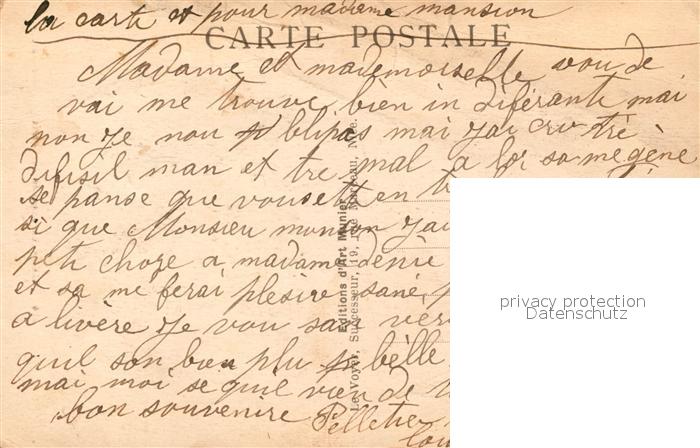 la carte et pour madame mansion
CARTE POSTALE
Madame et mademoiselle vou de
vai me trouve bien in diférante mai
non je nou blipas mai jai cru trè
difisil man et tre mal a lor sa me gène
se panse que vousett en
si que Monsieu mansion jai
peti choze a madame denie
et sa me ferai plesire
a livère je vou
quil son bien plu belle
mai moi se quil vien de
bon souvenire Pelletie
Editions d'Art Munier
Le Voyer, Successeur, 19, rue
privacy protection
Datenschutz